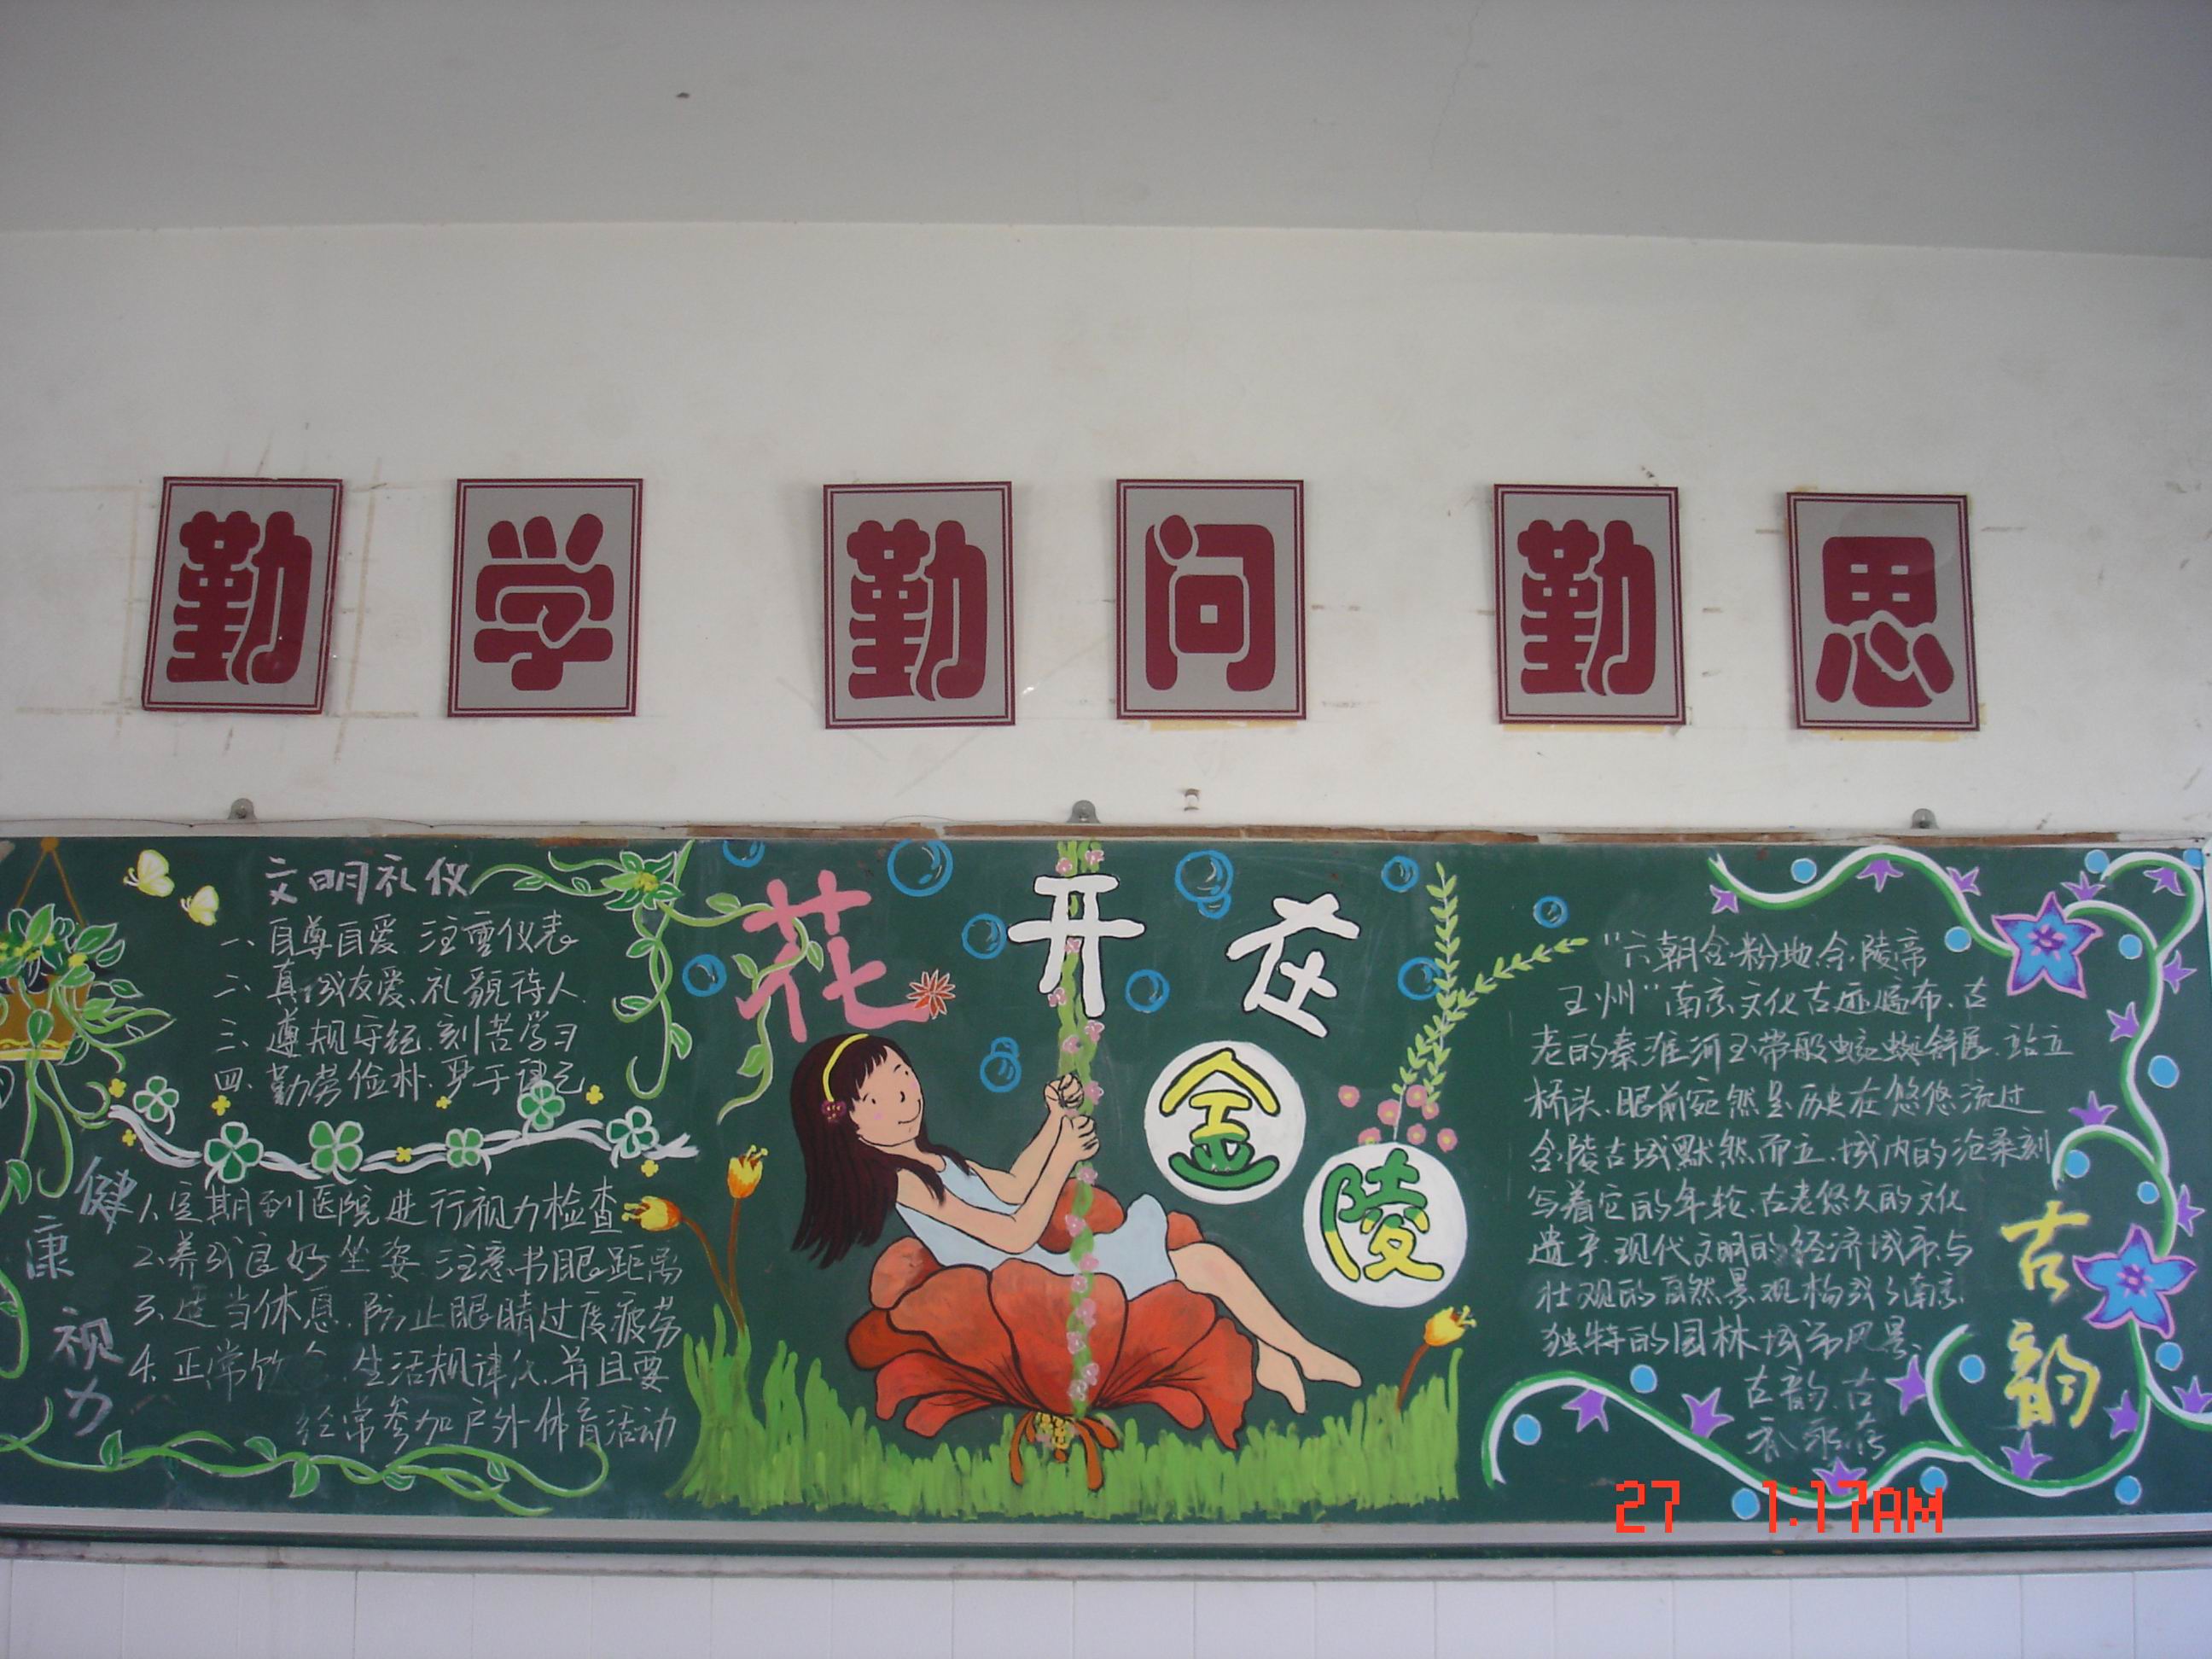 勤学 勤问 勤思
花开在
金陵
文明礼仪
一、自尊自爱.注重仪表
二、真诚友爱、礼貌待人.
三、遵规守纪.刻苦学习
四、勤劳俭朴.
健康视力
1、定期到医院进行视力检查
2、养成良好坐姿 注意书眼距离
3、适当休息.防止眼睛过度疲劳
4、正常饮食.生活规律化.并且要
经常参加户外体育活动
"六朝金粉地.金陵帝
王州"南京文化古迹遍布.古
老的秦淮河玉带般蜿蜒舒展.站立
桥头.眼前宛然是历史在悠悠流过
金陵古城默然而立.城内的沧桑刻
写着它的年轮.古老悠久的文化
遗产.现代文明的经济城市.与
壮观的自然景观构成了南京.
独特的园林城市风景.
古韵.古
古韵
27 1:17AM